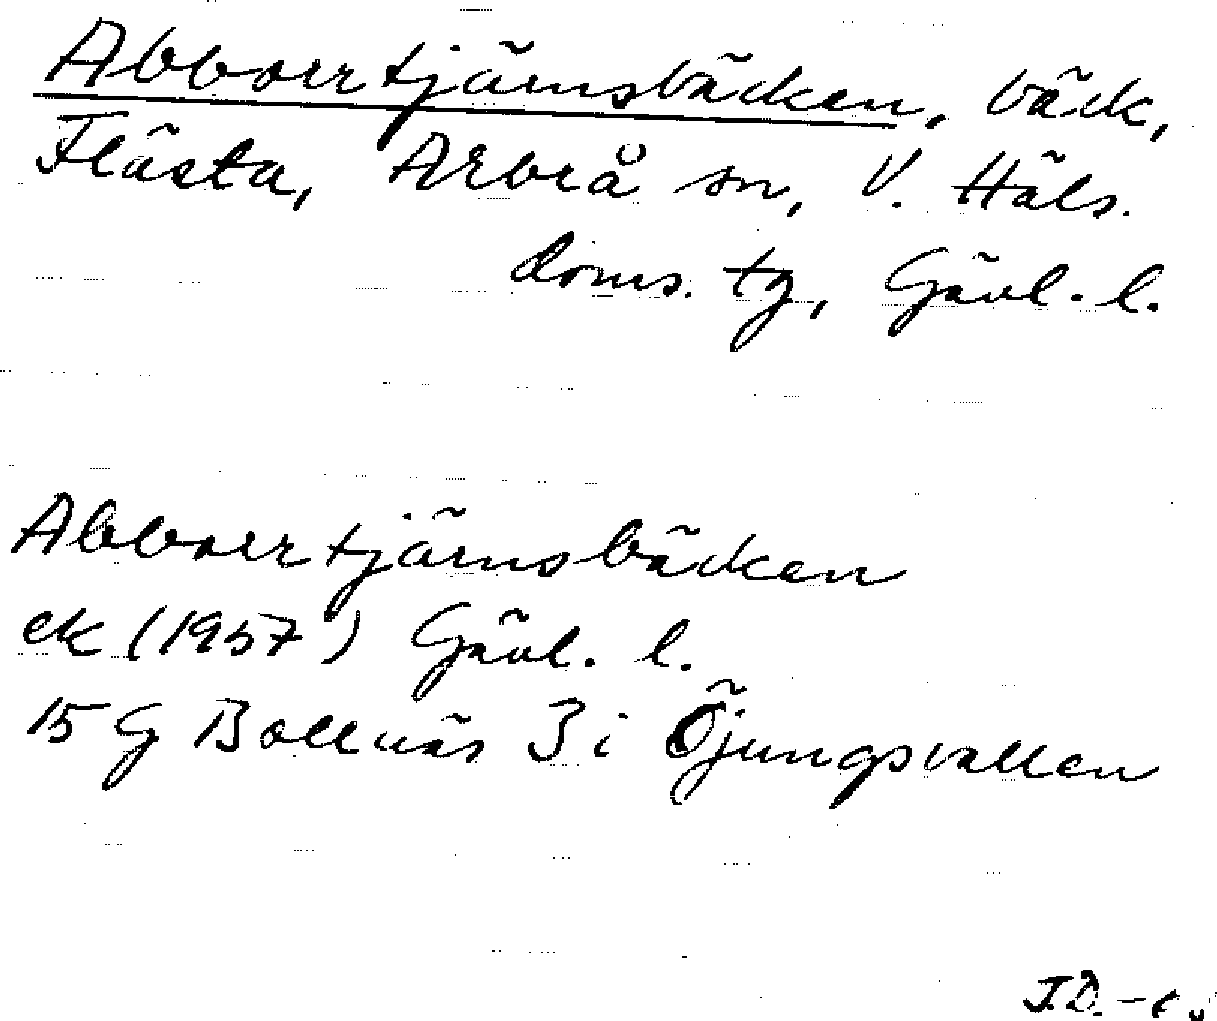 Abborrtjärnsbäcken, bäck,
Flästa, Arbrå sn, V. Häls.
doms. tg, Gävl. l.
Abborrtjärnsbäcken
ek (1957) Gävl. l.
15 G Bollnäs 3 i Öjungsvallen
J.D.